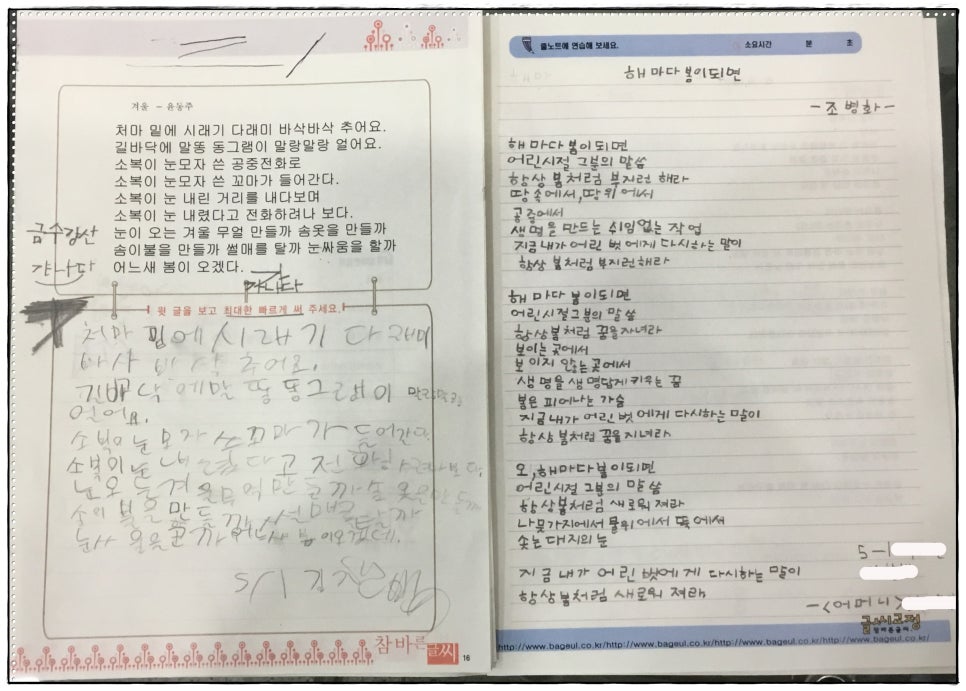 겨울 - 윤동주
처마 밑에 시래기 다래미 바삭바삭 추어요.
길바닥에 말똥 동그램이 말랑말랑 얼어요.
소복이 눈모자 쓴 공중전화로
소복이 눈모자 쓴 꼬마가 들어간다.
소복이 눈 내린 거리를 내다보며
소복이 눈 내렸다고 전화하려나 보다.
눈이 오는 겨울 무얼 만들까 솜옷을 만들까
솜이불을 만들까 썰매를 탈까 눈싸움을 할까
어느새 봄이 오겠다.
금수강산
갸냐댜
가나다
윗 글을 보고 최대한 빠르게 써 주세요.
처마 밑에 시래기 다래미
바사 바삭 추어요.
긴바닥에 말똥 동그래이
얼어요.
소복이 눈모자 쓰꼬마가 들어간다.
소복이 눈 내렸다고 전화
참바른글씨
16
줄노트에 연습해 보세요.
소요시간 분 초
해마다 봄이되면
- 조병화 -
해마다 봄이되면
어린시절 그분의 말씀
항상 봄처럼 부지런해라
땅속에서, 땅위에서
공중에서
생명을 만드는 쉬임없는 작업
지금 내가 어린 벗에게 다시하는 말이
항상 봄처럼 부지런해라
해마다 봄이되면
어린시절 그분의 말씀
항상봄처럼 꿈을지녀라
보이는 곳에서
보이지 않는곳에서
생명을 생명답게키우는 꿈
봄은 피어나는 가슴
지금내가 어린벗에게 다시하는 말이
항상 봄처럼 꿈을지녀라
오, 해마다봄이되면
어린시절 그분의 말씀
항상봄처럼 새로워져라
나뭇가지에서 물위에서 뚝에서
솟는 대지의눈
지금내가 어린 벗에게 다시하는 말이
항상봄처럼 새로워져라
5-1
-<어머니>
글씨교정
http://www.bageul.co.kr/http://www.bageul.co.kr/http://www.bageul.co.kr/